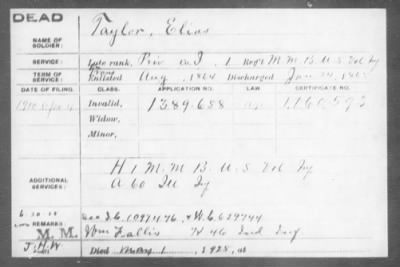 DEAD
NAME OF SOLDIER: Taylor, Elias
SERVICE: Late rank, Priv Co I, 1 Regt M. M. B. U. S. Vol Inf
TERM OF SERVICE: Enlisted Aug , 1864 Discharged Jan
DATE OF FILING. CLASS. APPLICATION NO. LAW. CERTIFICATE NO.
1910 Invalid, 1389.688
Widow,
Minor,
ADDITIONAL SERVICES: H 1 M. M. B. U. S. Vol Inf
A 60 Ill Inf
REMARKS: See I.C. 1097476, & W.C. 629744
M. M. Wm Fallis K 46 Ind Inf
J.H.W. Died May 1, 1928, at